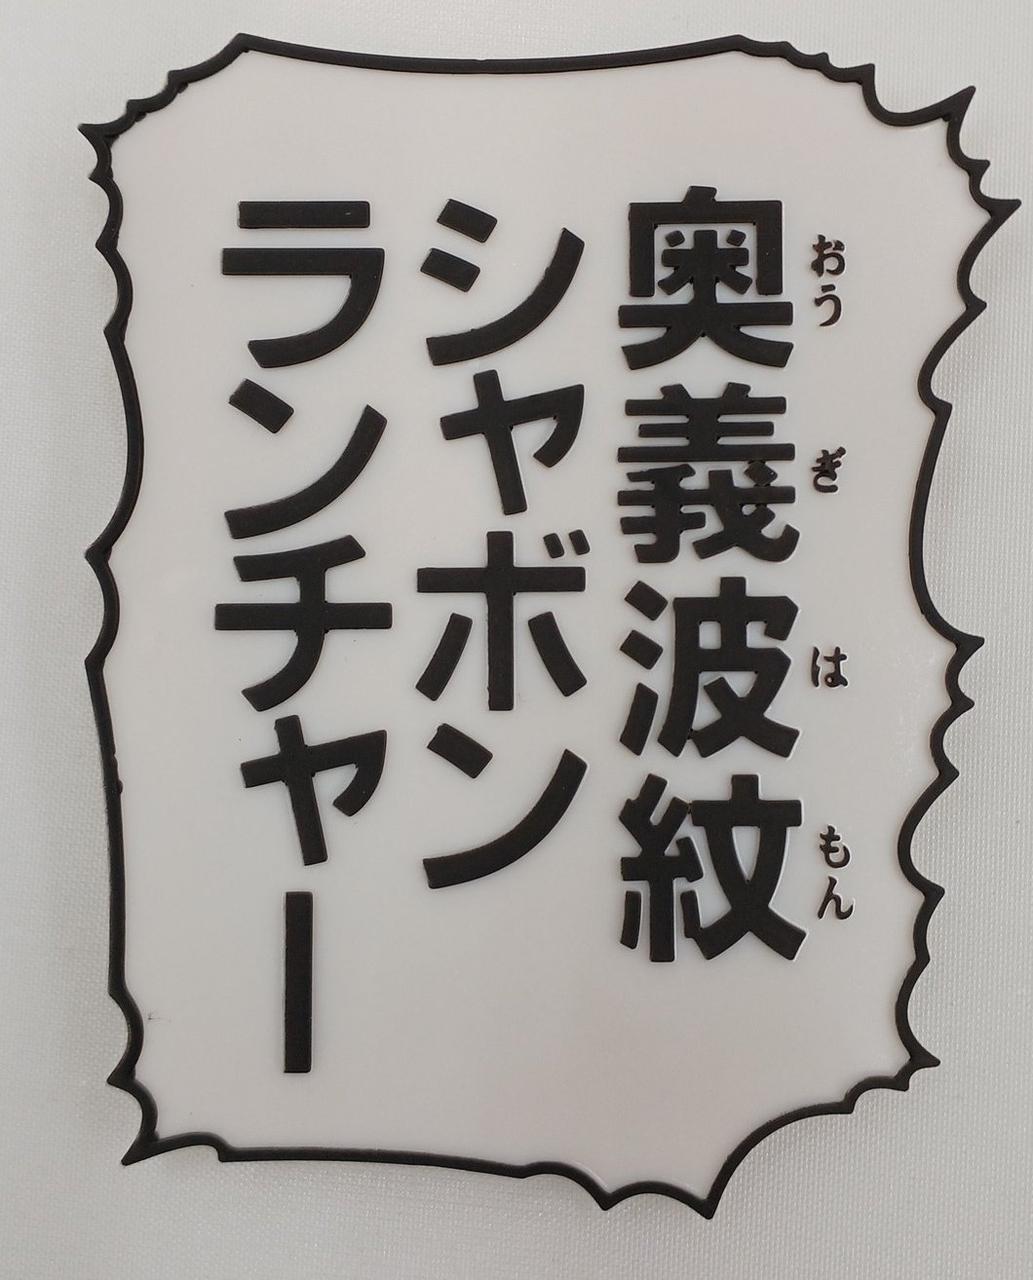 奥義波紋
おうぎはもん
シャボン
ランチャー